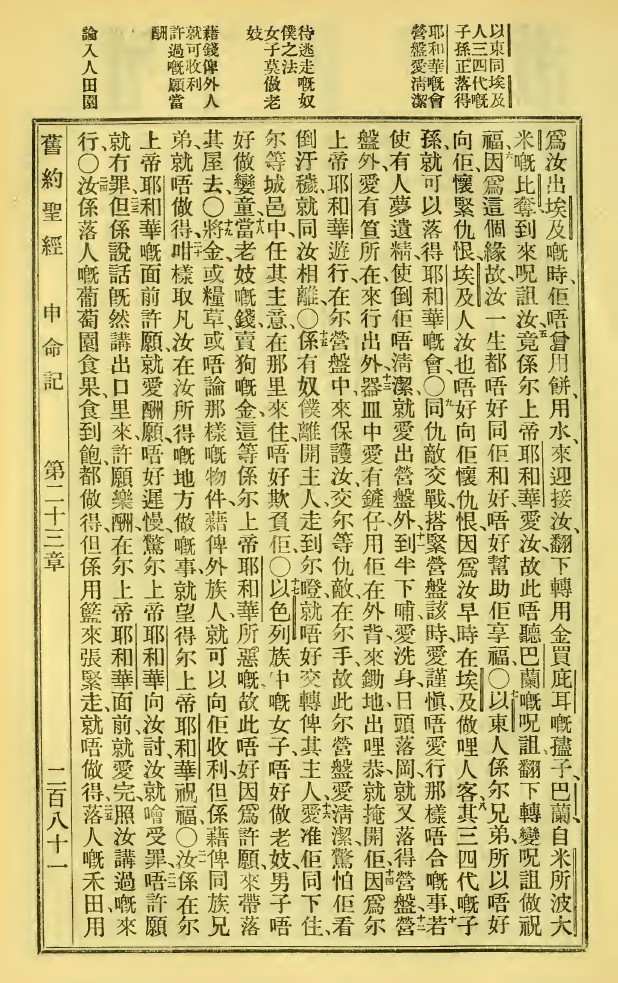 以東同埃及
人三四代嘅
子孫正落得
耶和華嘅會
營盤愛淸潔
待逃走嘅奴
僕之法
女子莫做老
妓
藉錢俾外人
就可收利
許過嘅願當
酬
論入人田園
爲汝出埃及嘅時佢唔曾用餅用水來迎接汝、翻下轉用金買庇耳嘅𡥧子、巴蘭自米所波大
米嘅比奪到來呪詛汝、五竟係尔上帝耶和華愛汝、故此唔聽巴蘭嘅呪詛、翻下轉變呪詛做祝
福、六因爲這個緣故、汝一生都唔好同佢和好、唔好幫助佢享福、〇七以東人係尔兄弟、所以唔好
向佢懷緊仇恨、埃及人汝也唔好向佢懷仇恨、因爲汝早時在埃及做哩人客、八其三四代嘅子
孫、就可以落得耶和華嘅會、〇九同仇敵交戰、搭緊營盤該時、愛謹愼、唔愛行那樣唔合嘅事、十若
使有人夢遺精、使倒佢唔淸潔、就愛出營盤外、十一到半下晡愛洗身、日頭落岡、就又落得營盤、十二營
盤外、愛有笪所在來行出外、十三器皿中愛有鏟仔、用佢在外背來鋤地、出哩恭就掩開佢、十四因爲尔
上帝耶和華遊行在尔營盤中、來保護汝、交尔等仇敵在尔手、故此尔營盤愛淸潔、驚怕佢看
倒汙穢、就同汝相離、〇十五係有奴僕離開主人、走到尔嶝、就唔好交轉俾其主人、十六愛准佢同下住、
尔等城邑中、任其主意在那里來住、唔好欺負佢、〇十七以色列族中嘅女子、唔好做老妓、男子唔
好做孌童、十八當老妓嘅錢、賣狗嘅金、這等係尔上帝耶和華所惡嘅、故此唔好因爲許願來帶落
其屋去、〇十九將金、或糧草、或唔論那樣嘅物件、藉俾外族人、就可以向佢收利、但係藉俾同族兄
弟、就唔做得、二十咁樣取凡汝在汝所得嘅地方做嘅事、就望得尔上帝耶和華祝福、〇二一汝係在尔
上帝耶和華嘅面前許願、就愛酬願、唔好遲慢、驚尔上帝耶和華向汝討、汝就噲受罪、二二唔許願
就有罪、二三但係說話旣然講出口里來、許願樂酬、在尔上帝耶和華面前、就愛完照汝講過嘅來
行、〇二四汝係落人嘅葡萄園、食果食到飽、都做得、但係用籃來張緊走、就唔做得、二五落人嘅禾田、用
舊約聖經 申命記 第二十三章 二百八十一